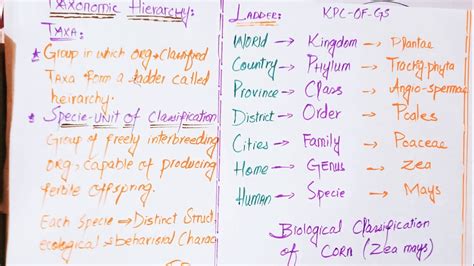 Taxonomic Hierarchy:
TAXA:
* Group in which org + classified
Taxa form a ladder called
heirarchy.
* Specie-Unit of Classification
Group of freely interbreeding
org, capable of producing
ferible offspring.
Each Specie → Distinct Struct,
ecological & behavioral Charac
LADDER: KPC-OF-GS
World → Kingdom → Plantae
Country → Phylum → Trachyphyta
Province → Class → Angio-spermay
District → Order → Poales
Cities → Family → Poaceae
Home → Genus → Zea
Human → Specie → Mays
Biological Classification
of Corn (Zea mays)